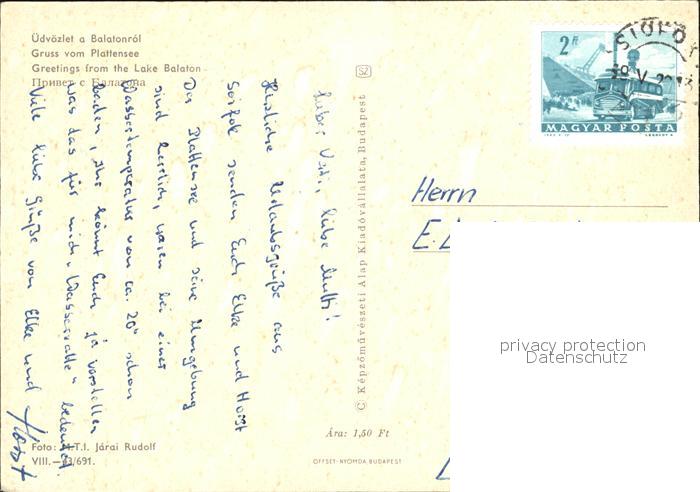 Üdvözlet a Balatonról
Gruss vom Plattensee
Greetings from the Lake Balaton
Привет с Балатона
SZ
2 Ft
MAGYAR POSTA
SIÓFOK
Lieber Vati, liebe Mutti!
Herzliche Urlaubsgrüße aus
Siófok senden Euch Elke und Horst
Der Plattensee und seine Umgebung
sind herrlich, waren bei einer
Wassertemperatur von ca. 20° schon
baden, Ihr könnt Euch ja vorstellen
was das für mich „Wasserratte" bedeutet.
Viele liebe Grüße von Elke und
Horst
© Képzőművészeti Alap Kiadóvállalata, Budapest
Herrn
E.
privacy protection
Datenschutz
Ára: 1,50 Ft
Foto: M.T.I. Járai Rudolf
VIII.—63/691.
OFFSET-NYOMDA BUDAPEST